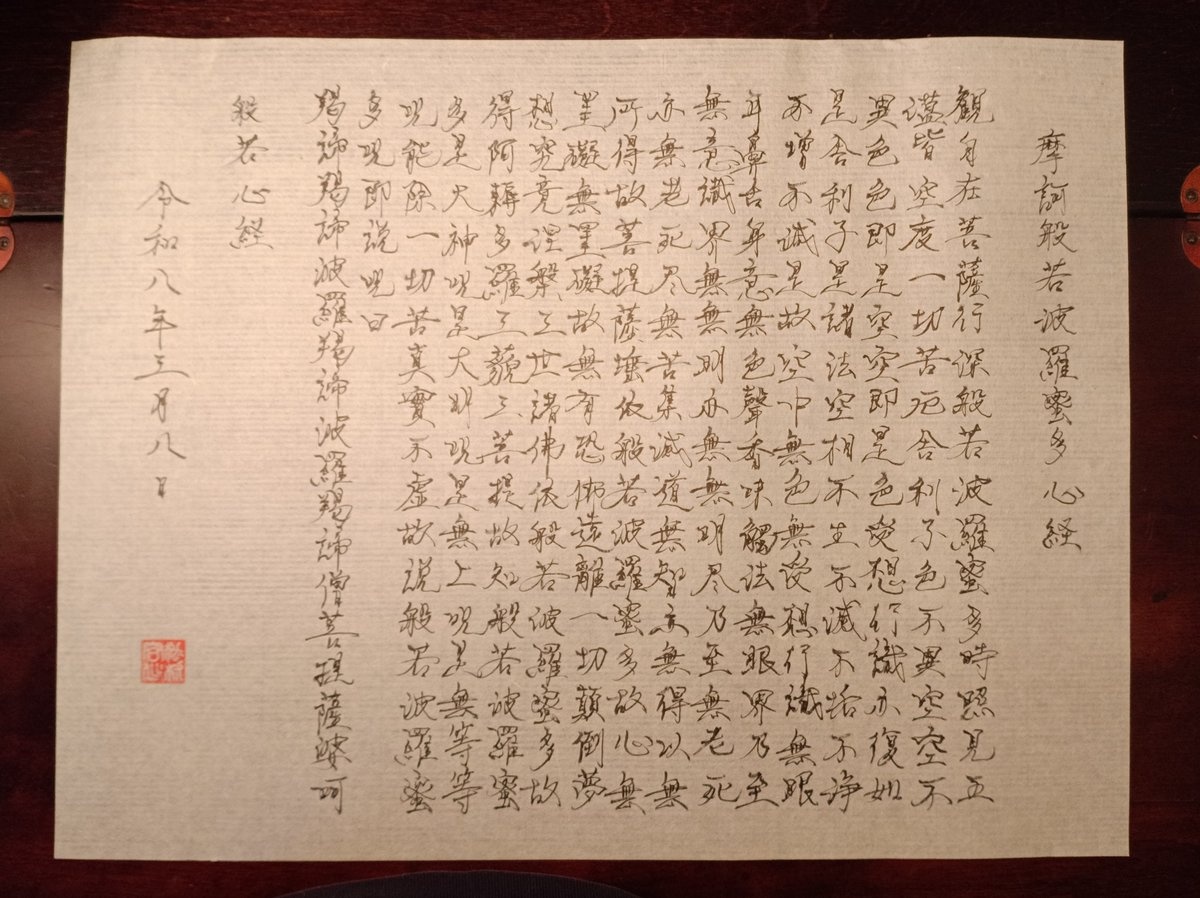 摩訶般若波羅蜜多心経
観自在菩薩行深般若波羅蜜多時照見五
蘊皆空度一切苦厄舎利子色不異空空不
異色色即是空空即是色受想行識亦復如
是舎利子是諸法空相不生不滅不垢不浄
不増不減是故空中無色無受想行識無眼
耳鼻舌身意無色聲香味觸法無眼界乃至
無意識界無無明亦無無明尽乃至無老死
亦無老死尽無苦集滅道無智亦無得以無
所得故菩提薩埵依般若波羅蜜多故心無
罣礙無罣礙故無有恐怖遠離一切顛倒夢
想究竟涅槃三世諸佛依般若波羅蜜多故
得阿耨多羅三藐三菩提故知般若波羅蜜
多是大神呪是大明呪是無上呪是無等等
呪能除一切苦真實不虚故説般若波羅蜜
多呪即説呪曰
羯諦羯諦波羅羯諦波羅羯諦僧菩提薩婆訶
般若心経
令和八年三月八日